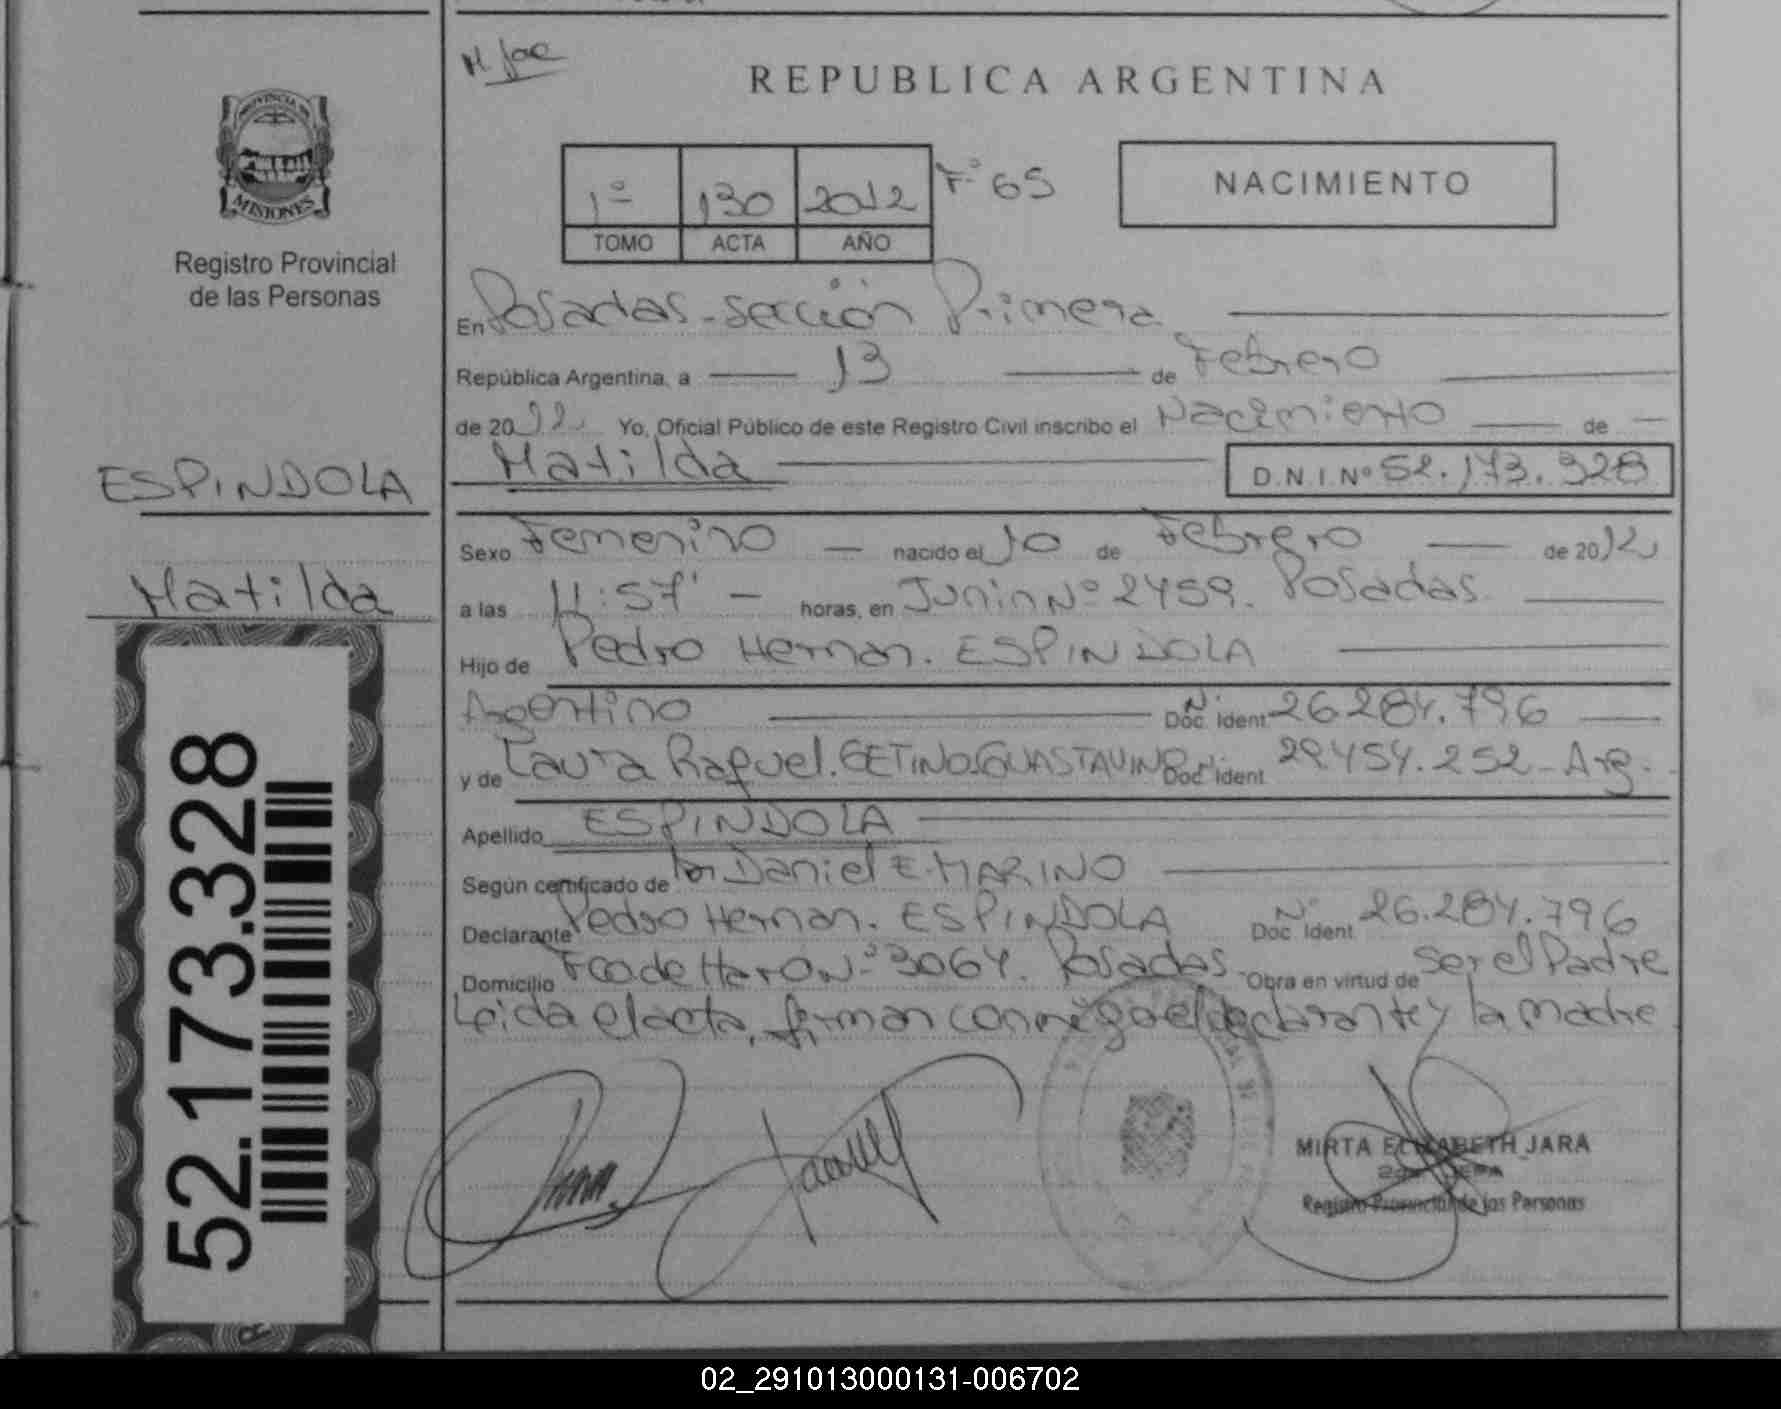 M. Jac
REPUBLICA ARGENTINA
PROVINCIA DE
MISIONES
Registro Provincial
de las Personas
1º 130 2012 Fº 65
TOMO ACTA AÑO
NACIMIENTO
En Posadas - Sección Primera
República Argentina, a 13 de Febrero
de 2012 Yo, Oficial Público de este Registro Civil inscribo el Nacimiento de
Matilda D.N.I. Nº 52.173.328
ESPINDOLA
Matilda
Sexo Femenino nacido el 10 de Febrero de 2012
a las 11:57' horas, en Junin Nº 2459. Posadas
Hijo de Pedro Hernan. ESPINDOLA
Argentino Nº Doc. Ident 26.284.796
y de Laura Raquel. GETINO GUASTAVINO Doc. Ident 29.454.252 - Arg.
Apellido ESPINDOLA
Según certificado de Dr Daniel E. MARINO
Declarante Pedro Hernan. ESPINDOLA Nº Doc. Ident. 26.284.796
Domicilio Fco de Haro Nº 3064. Posadas Obra en virtud de ser el Padre
Leida el acta, firman conmigo el declarante y la madre
52.173.328
MIRTA ELIZABETH JARA
Registro Provincial de las Personas
02_291013000131-006702